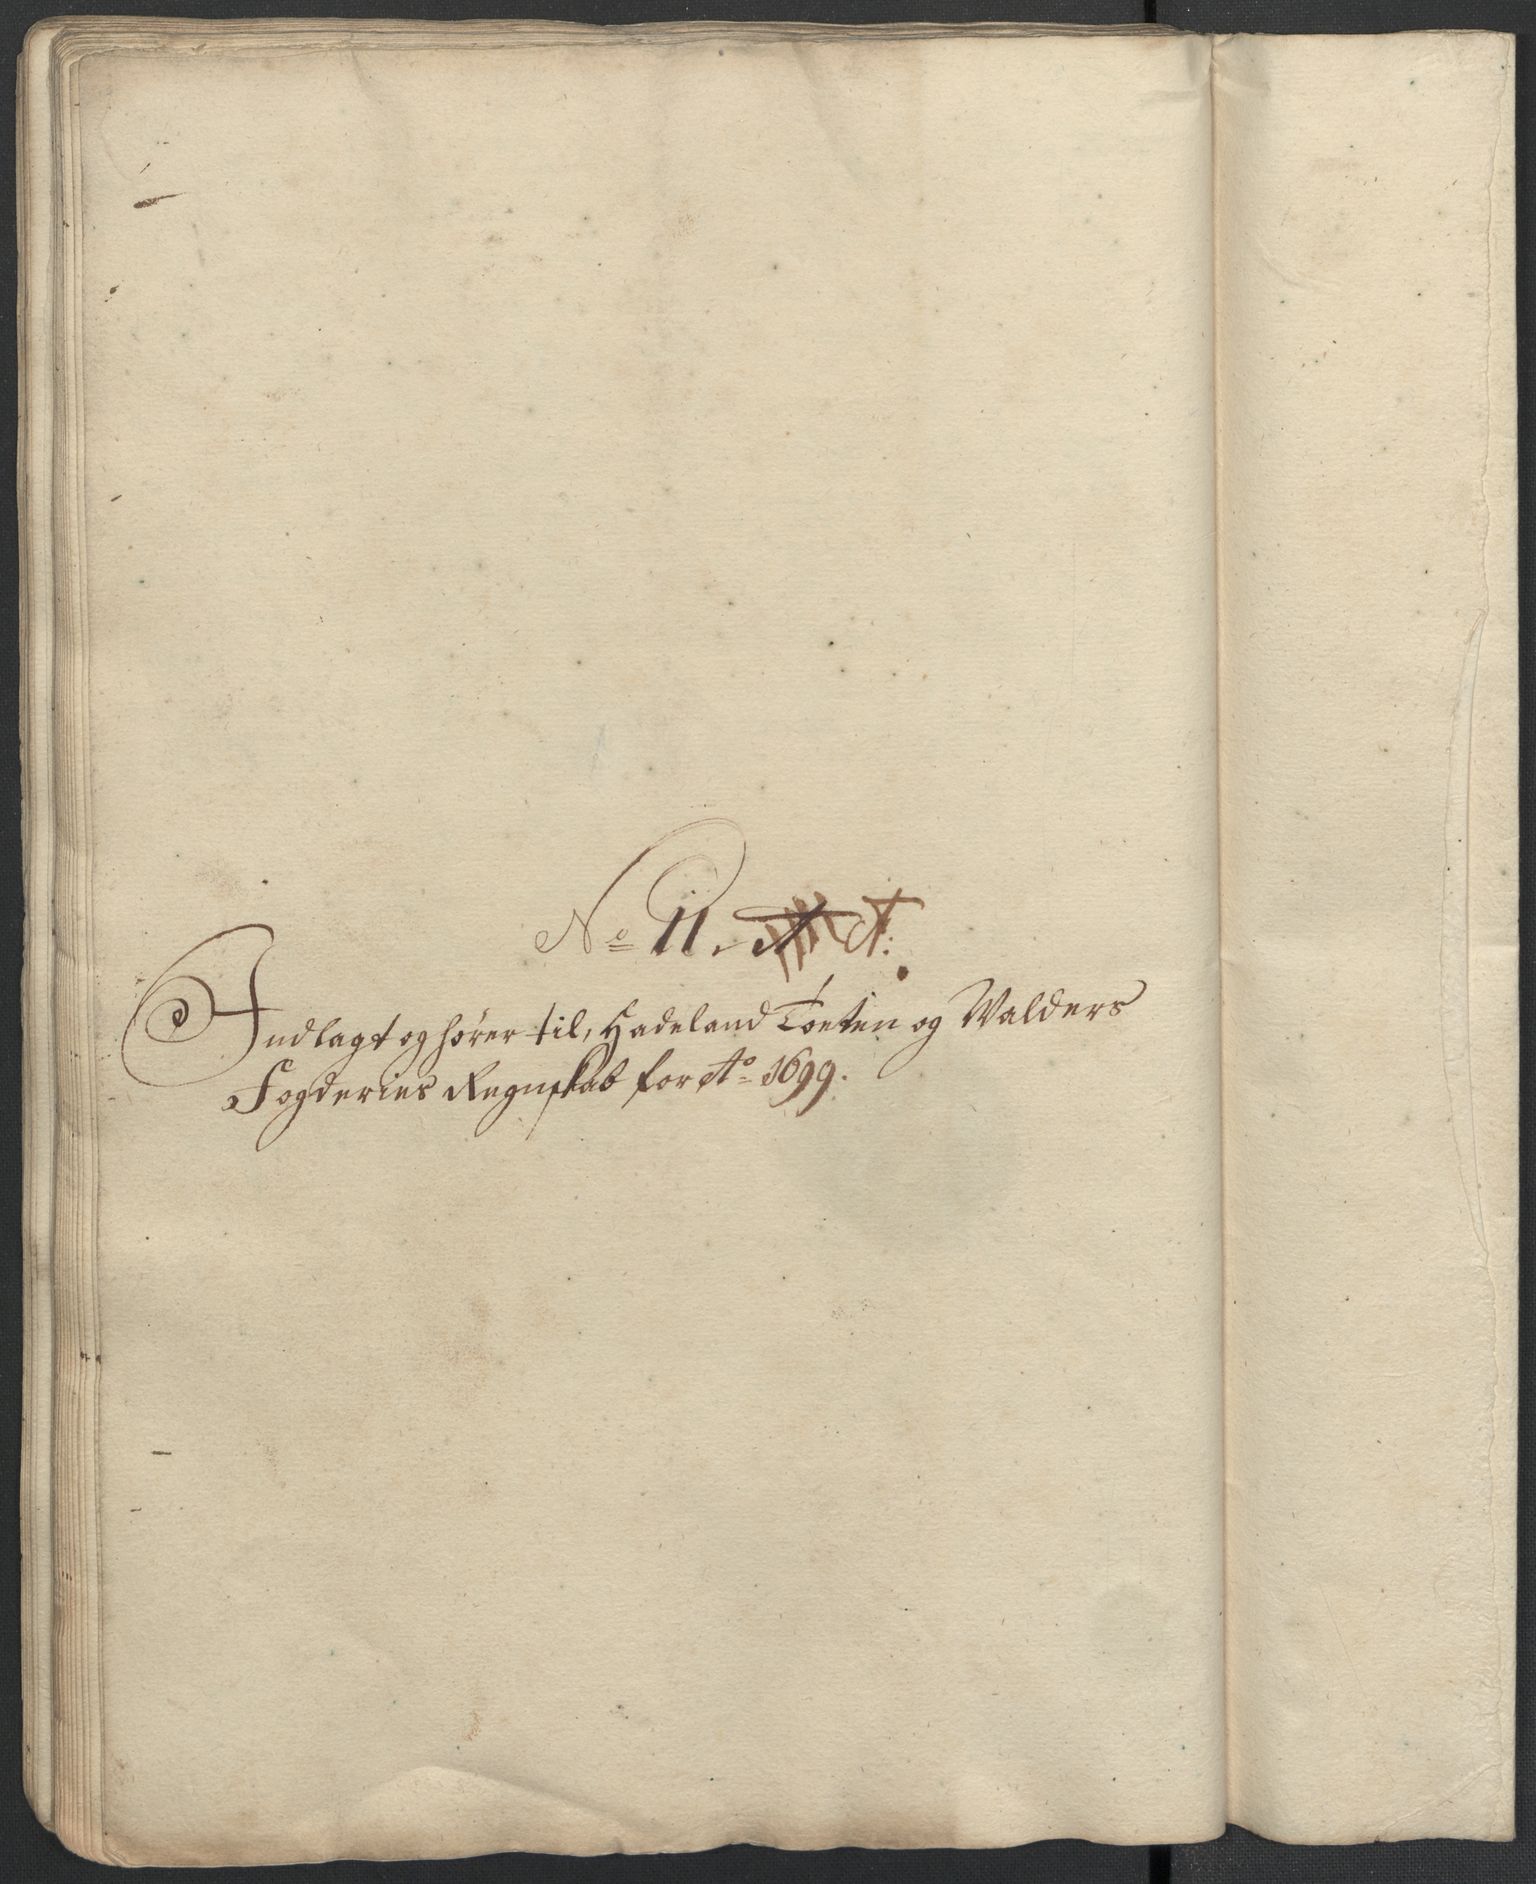 No 11. A:
Indlagt og hører til, Hadeland Toeten og Walders
Fogderies Regnskab for Ao 1699.